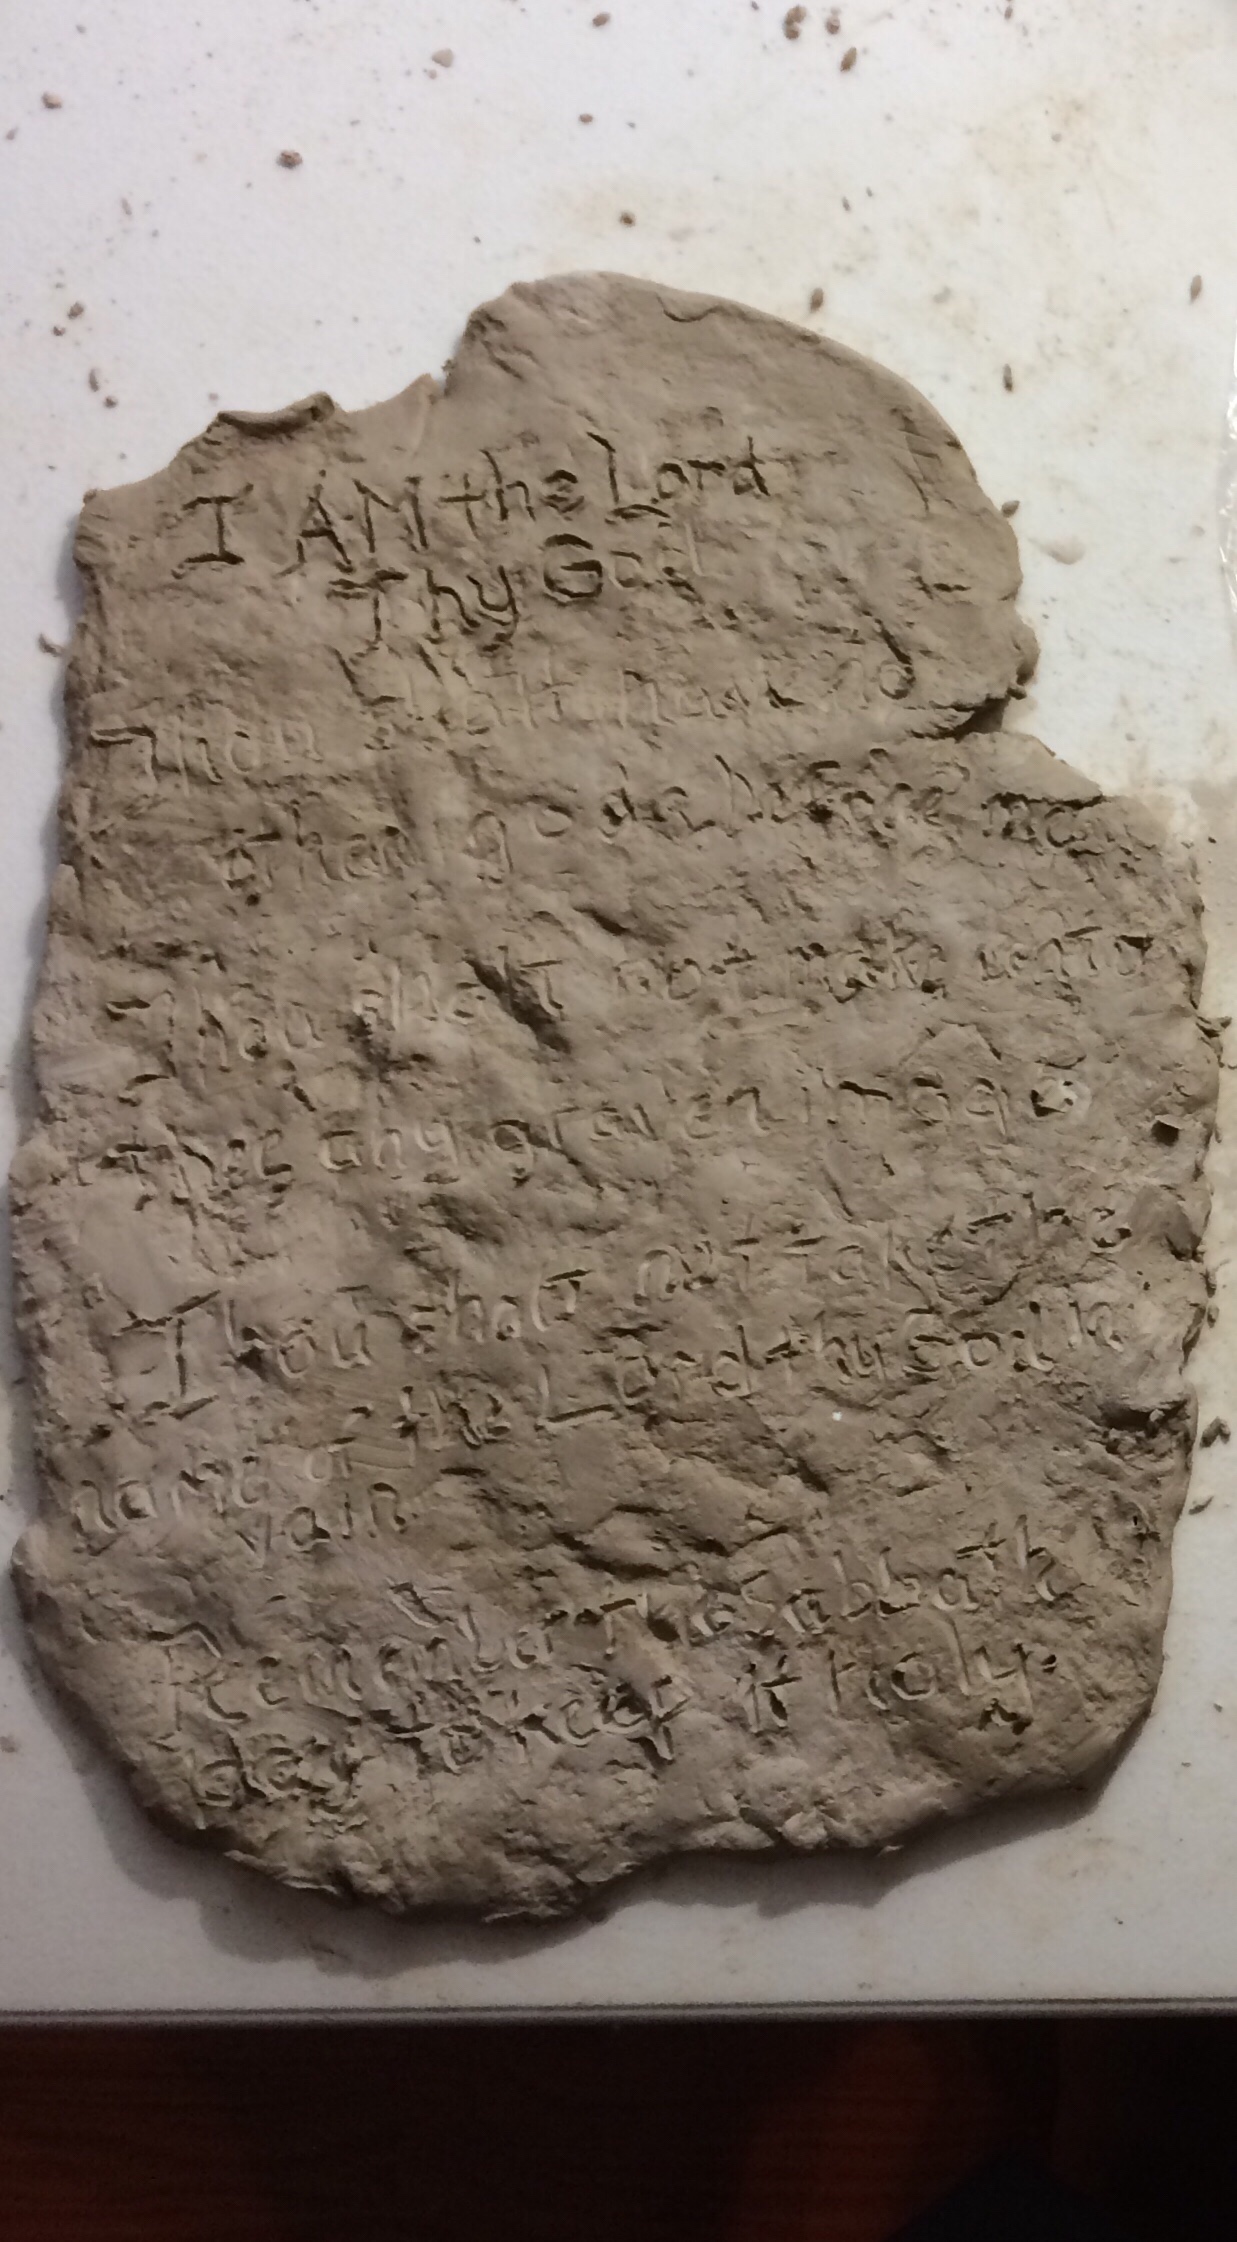 I AM the Lord
Thy God
Thou shalt have no
other gods before me
Thou shalt not make unto
thee any graven image
Thou shalt not take the
name of the Lord thy God in
vain
Remember the Sabbath
day to keep it Holy.